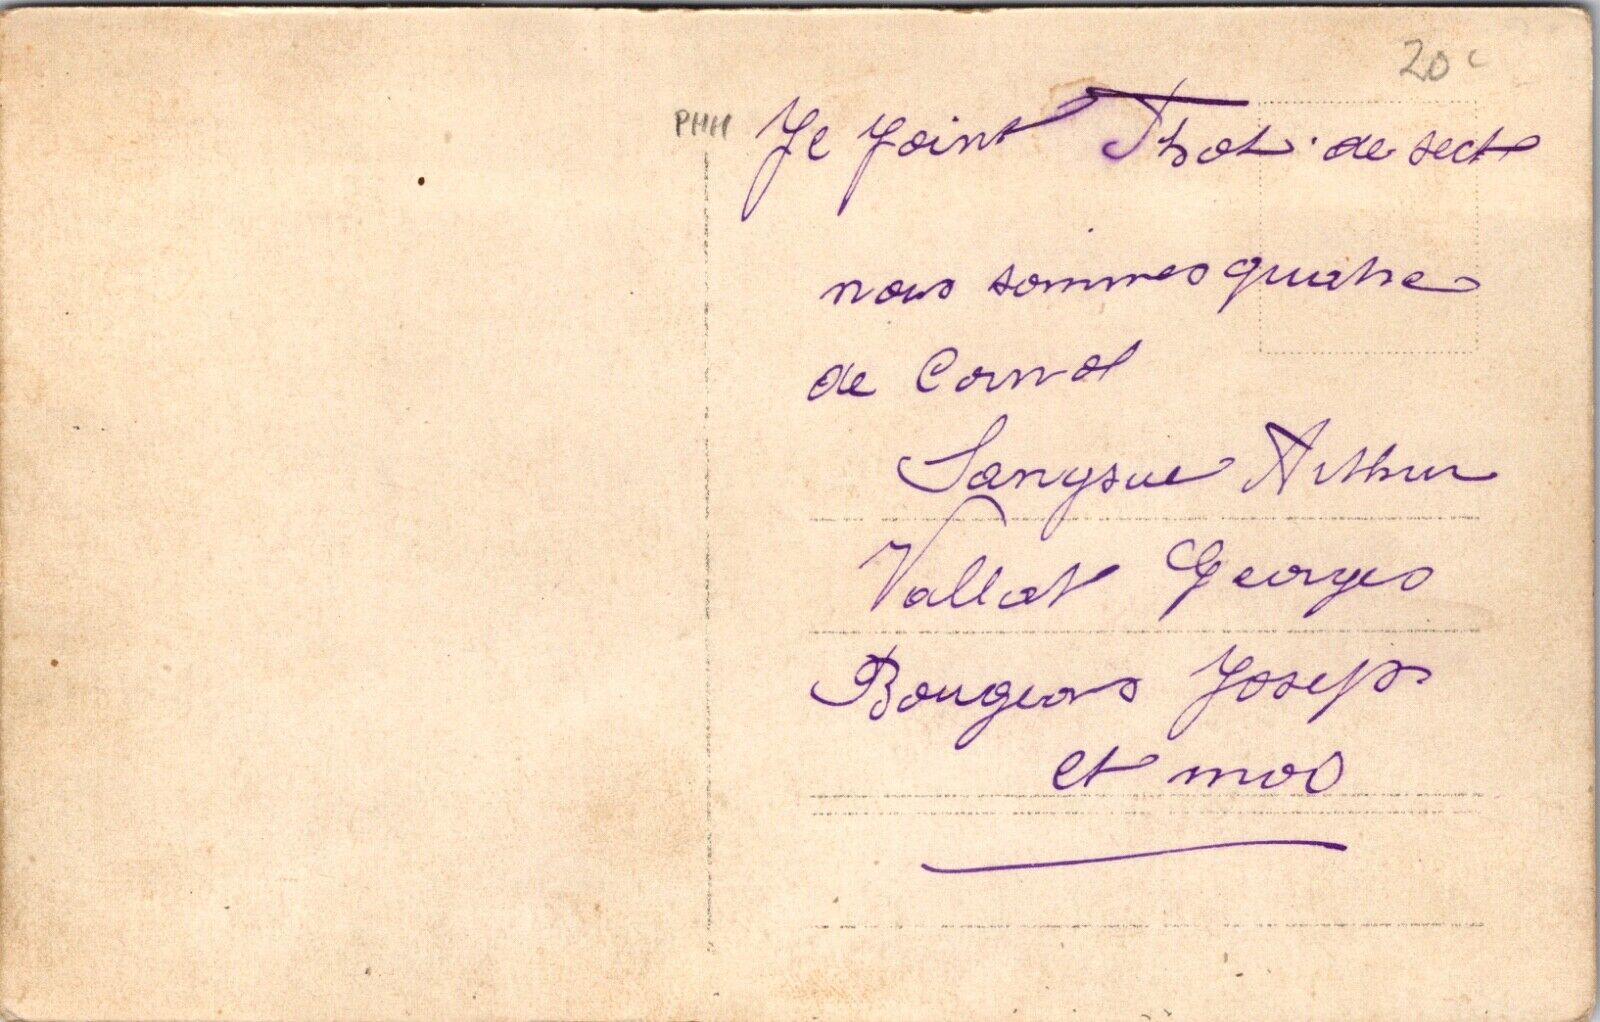 20 c
PHH
Je joint Phot. de sect
nous sommes quatre
de Cornol
Sangsue Arthur
Vallat Georges
Bourgeois Joseph
et moi